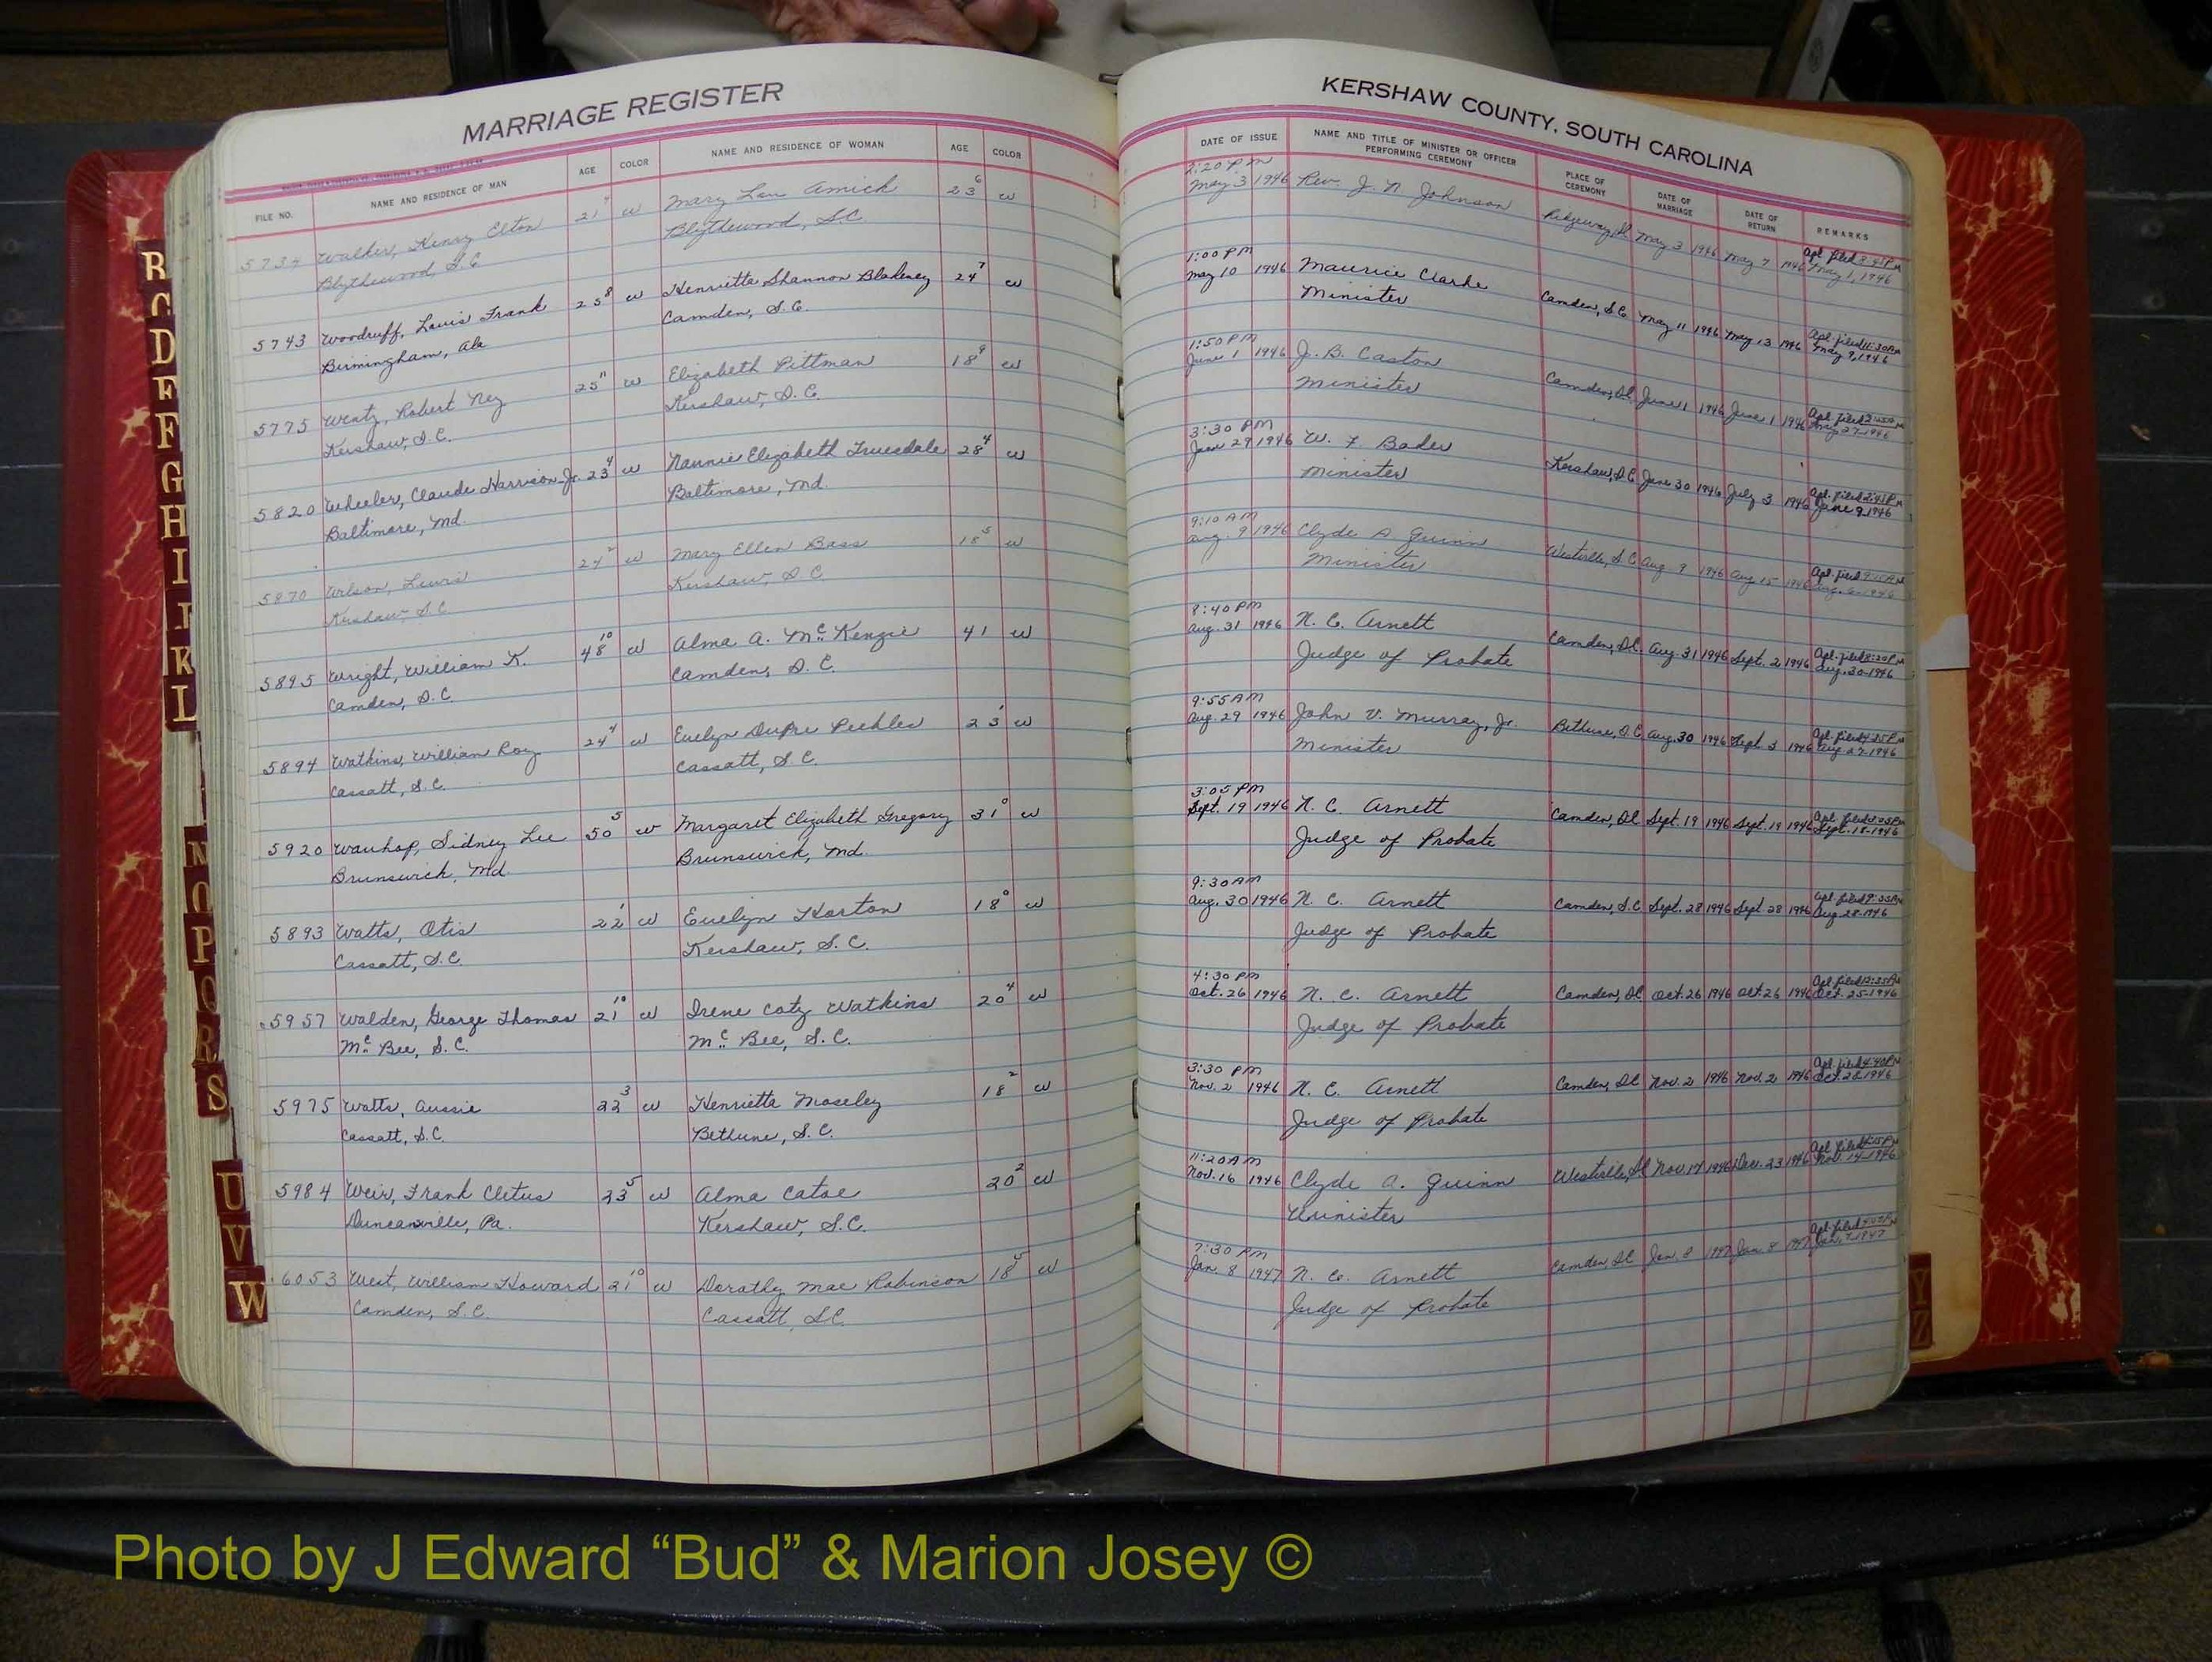 MARRIAGE REGISTER
FILE NO. NAME AND RESIDENCE OF MAN AGE COLOR NAME AND RESIDENCE OF WOMAN AGE COLOR
5734 Walker, Henry Elton 21 7 W Mary Lou Amick 23 6 W
Blythewood, S.C. Blythewood, S.C.
5743 Woodruff, Louis Frank 25 8 W Henrietta Shannon Blakeney 24 7 W
Birmingham, Ala Camden, S.C.
5775 Wentz, Robert Ney 25 11 W Elizabeth Pittman 18 9 W
Kershaw, S.C. Kershaw, S.C.
5820 Wheeler, Claude Harrison Jr. 23 4 W Nannie Elizabeth Truesdale 28 4 W
Baltimore, Md. Baltimore, Md.
5870 Wilson, Lewis 24 2 W Mary Ellen Bass 18 5 W
Kershaw, S.C. Kershaw, S.C.
5895 Wright, William K. 48 10 W Alma A. McKenzie 41 W
Camden, S.C. Camden, S.C.
5894 Watkins, William Roy 24 4 W Evelyn DuPre Peebles 23 1 W
Cassatt, S.C. Cassatt, S.C.
5920 Wauhop, Sidney Lee 50 5 W Margaret Elizabeth Gregory 31 0 W
Brunswick, Md. Brunswick, Md.
5893 Watts, Otis 22 1 W Evelyn Horton 18 0 W
Cassatt, S.C. Kershaw, S.C.
5957 Walden, George Thomas 21 10 W Irene Caty Watkins 20 4 W
McBee, S.C. McBee, S.C.
5975 Watts, Aussie 22 3 W Henrietta Moseley 18 2 W
Cassatt, S.C. Bethune, S.C.
5984 Weir, Frank Cletus 23 5 W Alma Catoe 20 2 W
Duncansville, Pa. Kershaw, S.C.
6053 West, William Howard 21 10 W Dorothy Mae Robinson 18 5 W
Camden, S.C. Cassatt, S.C.
KERSHAW COUNTY, SOUTH CAROLINA
DATE OF ISSUE NAME AND TITLE OF MINISTER OR OFFICER PERFORMING CEREMONY PLACE OF CEREMONY DATE OF MARRIAGE DATE OF RETURN REMARKS
2:20 PM
May 3 1946 Rev. J. N. Johnson Ridgeway, SC May 3 1946 May 7 1946 Apl. filed May 1, 1946
1:00 PM
May 10 1946 Maurice Clarke Camden, S.C. May 11 1946 May 13 1946 Apl. filed 11:30 AM May 9, 1946
Minister
1:50 PM
June 1 1946 J. B. Caston Camden, SC June 1 1946 June 1 1946 Apl. filed May 27-1946
Minister
3:30 PM
June 29 1946 W. F. Bader Kershaw, S.C. June 30 1946 July 3 1946 Apl. filed June 9, 1946
Minister
9:10 AM
Aug. 9 1946 Clyde A Guinn Westville, S.C. Aug. 9 1946 Aug 15 1946 Apl. filed
Minister
8:40 PM
Aug. 31 1946 N. C. Arnett Camden, SC. Aug 31 1946 Sept. 2 1946 Apl. filed 8:20 PM Aug. 30-1946
Judge of Probate
9:55 AM
Aug. 29 1946 John V. Murray, Jr. Bethune, S.C. Aug. 30 1946 Sept 3 1946 Apl. filed Aug 27-1946
Minister
3:05 PM
Sept. 19 1946 N. C. Arnett Camden, SC Sept. 19 1946 Sept. 19 1946 Apl. filed Sept. 18-1946
Judge of Probate
9:30 AM
Aug. 30 1946 N. C. Arnett Camden, S.C. Sept. 28 1946 Sept 28 1946 Apl. filed Aug 28-1946
Judge of Probate
4:30 PM
Oct. 26 1946 N. C. Arnett Camden, SC Oct. 26 1946 Oct. 26 1946 Apl. filed Oct. 25-1946
Judge of Probate
3:30 PM
Nov. 2 1946 N. C. Arnett Camden, SC Nov. 2 1946 Nov. 2 1946 Apl. filed 4:40 PM Oct 28-1946
Judge of Probate
11:20 AM
Nov. 16 1946 Clyde A. Guinn Westville, SC Nov. 17 1946 23 1946 Apl. filed Nov. 14-1946
Minister
7:30 PM
Jan. 8 1947 N. C. Arnett Camden, SC Jan. 8 1947 Jan. 8 1947 Apl. filed Jan. 7-1947
Judge of Probate
R
D
F
G
H
I
K
L
N
O
P
Q
R
S
U
V
W
Y
Z
Photo by J Edward “Bud” & Marion Josey ©